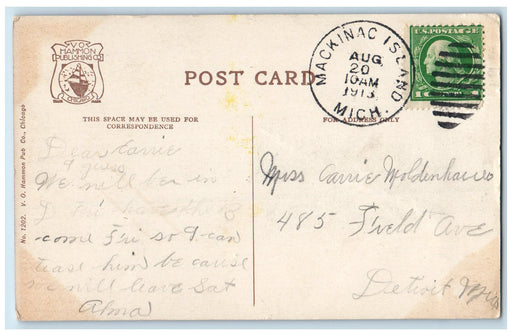 V.O.
HAMMON
PUBLISHING CO.
CHICAGO
POST CARD
MACKINAC ISLAND
AUG
20
10AM
1913
MICH.
U.S. POSTAGE
THIS SPACE MAY BE USED FOR
CORRESPONDENCE
FOR ADDRESS ONLY
No. 1202. V. O. Hammon Pub Co., Chicago
Dear Carrie
I guess
We will be in
come Fri so I can
tease him be cause
we will leave Sat
Alma
Miss Carrie Moldenhauer
485 Field Ave
Detroit Mich